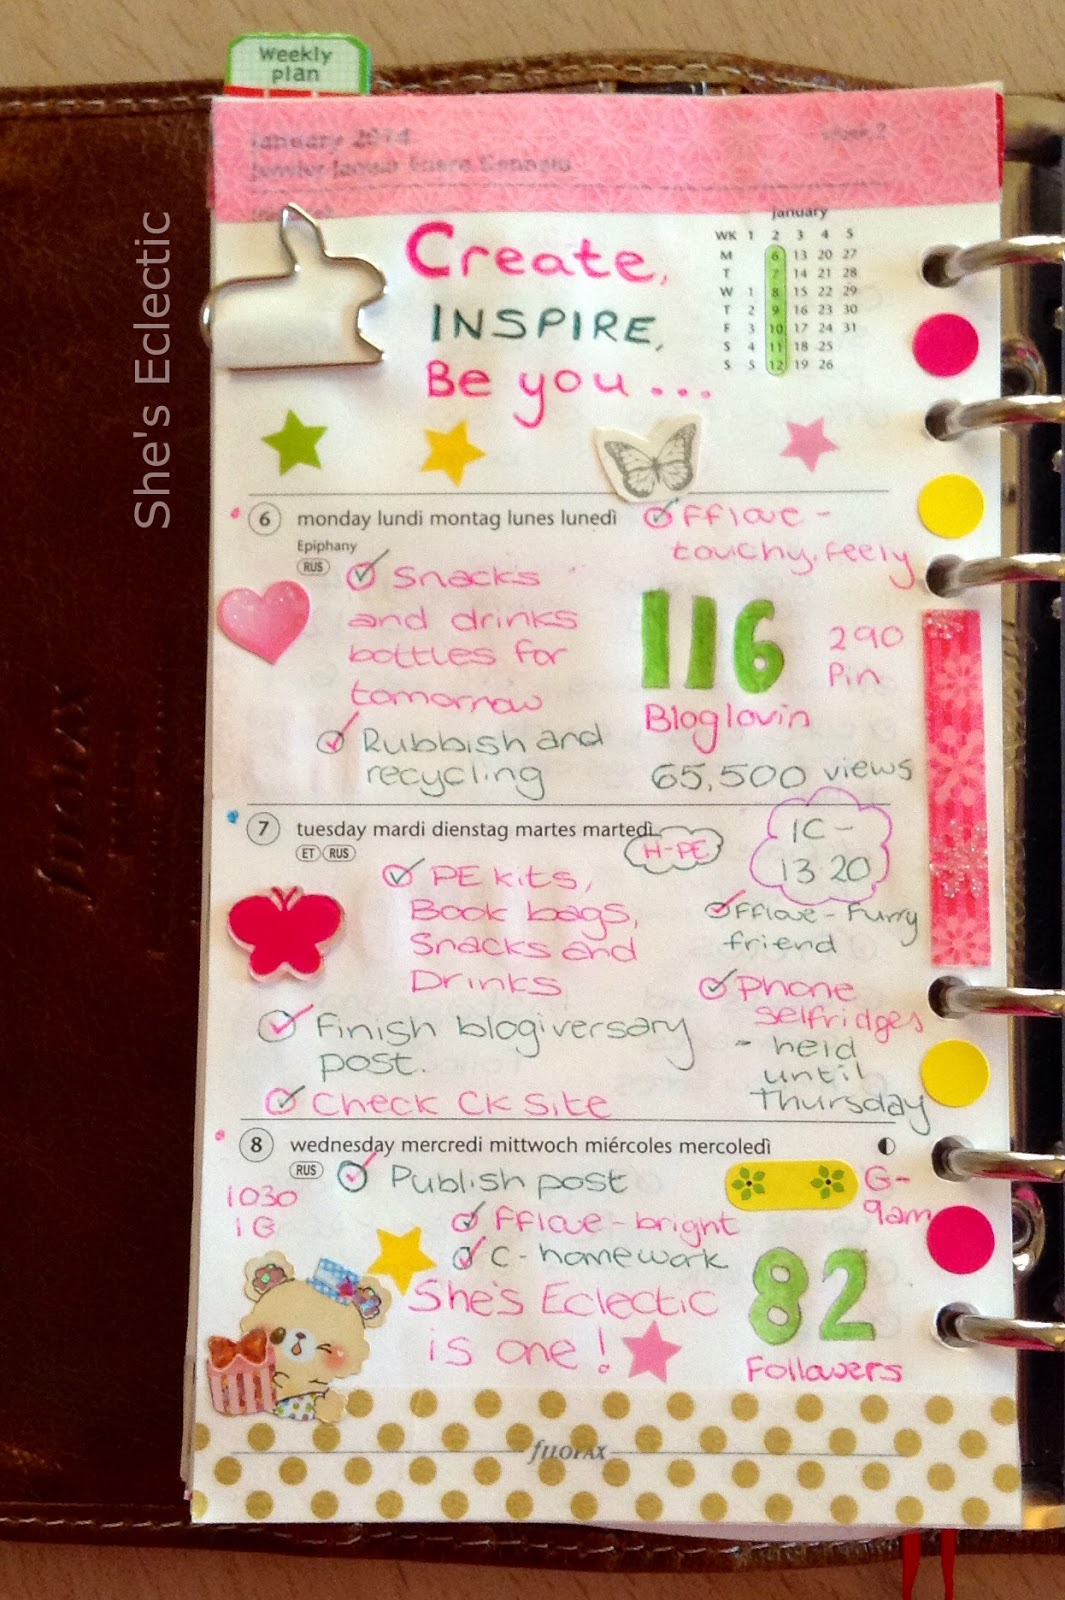 Weekly
plan
January 2014
Week 2
Janvier Januar Enero Gennaio
She's Eclectic
Create,
INSPIRE,
Be you...
January
WK 1 2 3 4 5
M 6 13 20 27
T 7 14 21 28
W 1 8 15 22 29
T 2 9 16 23 30
F 3 10 17 24 31
S 4 11 18 25
S 5 12 19 26
6 monday lundi montag lunes lunedì
Epiphany
RUS
Snacks
and drinks
bottles for
tomorrow
Rubbish and
recycling
FFlove -
touchy, feely
116
Bloglovin
290
Pin
65,500 views
7 tuesday mardi dienstag martes martedì
ET RUS
H-PE
1C -
13 20
PE kits,
Book bags,
Snacks and
Drinks
FFlove - Furry
friend
Phone
selfridges
- held
until
Thursday
Finish blogiversary
post.
Check CK Site
8 wednesday mercredi mittwoch miércoles mercoledì
RUS
1030
1G
Publish post
FFlove - bright
C - homework
G -
9am
She's Eclectic
is one!
82
Followers
fILOFAX